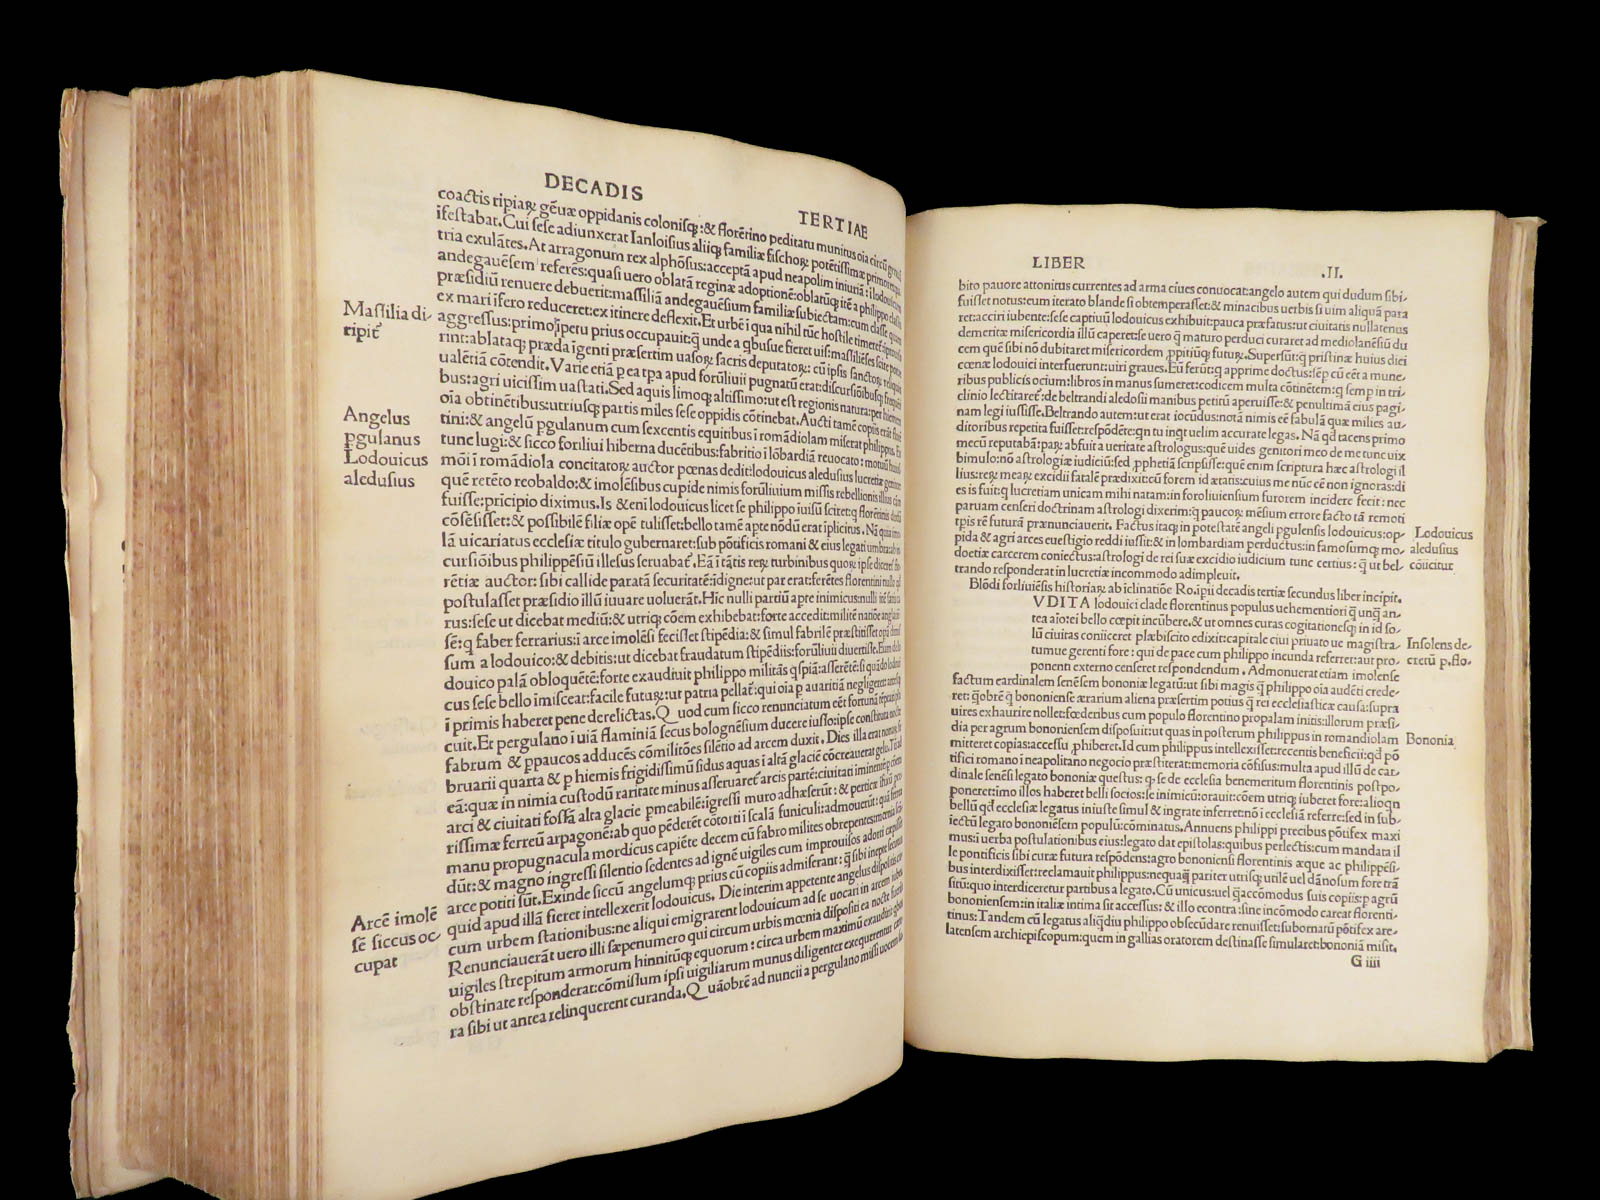 DECADIS
TERTIAE
coactis ripiaꝝ gēuæ oppidanis colonisq;:& florētino peditatu munitus oīa circū
ifestabat. Cui sese adiunxerat Ianloisius aliiq; familiæ fischoꝝ potētissimæ
tria exulātes. At arragonum rex alphōsus: acceptā apud neapolim iniuriā:
andegauēsem referēs: quasi uero oblatā reginæ adoptionē: oblatūq; itē a philippo
præsidiū renuere debuerit: massiliā andegauēsium familiæ subiectam: cum classe
ex mari ifero reduceret: ex itinere deflexit. Et urbē i qua nihil tūc hostile timeret
aggressus: primo īpetu prius occupauit: q̄ unde a qbusue fieret uis: massiliēses scire
rint: ablataq; præda īgenti præsertim uasoꝝ sacris deputatoꝝ: cū ipsis sanctoꝝ reliquiis
ualētiā cōtendit. Varie etiā p ea tpa apud forūliuii pugnatū erat: discursiōibusq;
bus: agri uicissim uastati. Sed aquis limoq; altissimo: ut est regionis natura: per hiemem
oīa obtinētibus: utriusq; partis miles sese oppidis cōtinebat. Aucti tamē copiis
tini: & angelū pgulanum cum sexcentis equitibus ī romādiolam miserat philippus.
tunc lugi: & sicco foriliui hiberna ducētibus: fabritio ī lōbardiā reuocato:
mōi ī romādiola concitatoꝝ auctor pœnas dedit: lodouicus aledusius lucretiæ
quē retēto reobaldo: & imolēsibus cupide nimis forūliuium missis rebellionis illius
fuisse: prīcipio diximus. Is &enī lodouicus licet se philippo iuisū sciret: q florētinis
cōsēsisset: & possibilē filiæ opē tulisset: bello tamē apte nōdū erat īplicitus. Nā
lā uicariatus ecclesiæ titulo gubernaret: sub pōtificis romani & eius legati umbra:
cursiōibus philippēsiū illesus seruabat. Eā ī tātis reꝝ turbinibus quoꝝ ipse diceret
rētiæ auctor: sibi callide paratā securitatē: īdigne: ut par erat: ferētes florentini nullo
postulasset præsidio illū iuuare uoluerāt. Hic nulli partiū apte inimicus: nulli
rus: sese ut dicebat mediū: & utriq; cōem exhibebat: forte accedit: militē natiōe
sē: q faber ferrarius: ī arce imolēsi fecisset stipēdia: & simul fabrilē præstitisset
sum a lodouico: & debitis: ut dicebat fraudatum stipēdiis: forūliuii diuertisse.
douico palā obloquētē: forte exaudiuit philippo militās qspiā: asserētē: si quādo
cus sese bello īmisceat: facile futuꝝ: ut patria pellat: qui oīa p auaritiā negligeret:
ī primis haberet pene derelictas. Quod cum sicco renunciatum eēt: fortunā
cuit. Et pergulano ī uiā flaminiā secus bolognēsium ducere iusso: ipse constituta nocte
fabrum & ppaucos adducēs cōmilitōes silētio ad arcem duxit. Dies illa erat
bruarii quarta & p hiemis frigidissimū sidus aquas ī altā glaciē cōcreauerat gelu.
eā: quæ in nimia custodū raritate minus asseruaret arcis partē: ciuitati iminentē
arci & ciuitati fossā alta glacie pmeabilē: īgressi muro adhæserūt: & perticæ
rissimæ ferreū arpagonē: ab quo pēderēt cōtorti ī scalā funiculi: admouerūt:
manu propugnacula mordicus capiēte decem cū fabro milites obrepentes:
dūt: & magno ingressi silentio sedentes ad ignē uigiles cum improuisos adorti
arce potiti sūt. Exinde siccū angelumq; prius cū copiis admiserant: q̄ sibi inepte
quid apud illā fieret intellexerit lodouicus. Die interim appetente angelus dispositis
cum urbem stationibus: ne aliqui emigrarent lodouicum ad se uocari in arcem iubet
Renunciauerāt uero illi sæpenumero qui circum urbis mœnia dispositi ea nocte
uigiles strepitum armorum hinnitūq; equorum: circa urbem maximū exaudiri
obstinate responderat: cōmissum ipsi uigiliarum munus diligenter exequerentur
ra sibi ut antea relinquerent curanda. Quāobrē ad nuncii a pergulano missi uocem
Massilia di-
ripit
Angelus
pgulanus
Lodouicus
aledusius
Arcē imolē
sē siccus oc-
cupat
LIBER
.II.
bito pauore attonitus currentes ad arma ciues conuocat: angelo autem qui dudum sibi-
fuisset notus: eum iterato blande si obtemperasset: & minacibus uerbis si uim aliquā para
ret: acciri iubente: sese captiuū lodouicus exhibuit: pauca præfatus: ut ciuitati nullatenus
demeritæ misericordia illū caperet: se uero q̄ maturo perduci curaret ad mediolanēsiū du
cem quē sibi nō dubitaret misericordem ꝓpitiūq; futuꝝ. Supersūt: q pristinæ huius diei
cœnæ lodouici interfuerunt: uiri graues. Eū ferūt: q apprime doctus: sēp cū eēt a mune-
ribus publicis ocium: libros in manus sumeret: codicem multa cōtinētem: q semp in tri-
clinio lectitaret: de beltrandi aledosii manibus petitū aperuisse: & penultimā eius pagi-
nam legi iussisse. Beltrando autem: ut erat iocūdus: notā nimis eē fabulā quæ milies au-
ditoribus repetita fuisset: respōdēte: qn tu inqt uelim accurate legas. Nā qd tacens primo
mecū reputabā: paꝝ abfuit a ueritate astrologus: quē uides genitori meo de me tunc uix
bimulo: nō astrologiæ iudiciū: sed ꝓphetiā scripsisse: quē enim scriptura hæc astrologi il
lius: reꝝ meaꝝ excidii fatalē prædixit: cū forem id ætatis: cuius me nūc eē non ignoras: di
es is fuit: q lucretiam unicam mihi natam: in foroliuiensium furorem incidere fecit: nec
paruam censeri doctrinam astrologi dixerim: q paucoꝝ mēsium errore facto tā remoti
tpis rē futurā prænunciauerit. Factus itaq; in potestatē angeli pgulensis lodouicus: op-
pida & agri arces euestigio reddi iussit: & in lombardiam perductus: in famosumq; mo-
doetiæ carcerem coniectus: astrologi de rei suæ excidio iudicium tunc certius: q ut bel-
trando responderat in lucretiæ incommodo adimpleuit.
Blōdi forliuiēsis historiaꝝ ab iclinatiōe Ro. ipii decadis tertiæ secundus liber incipit.
VDITA lodouici clade florentinus populus uehementiori q̄ unq̄ an-
tea aīo: ei bello cœpit incūbere: & ut omnes curas cogitationesq; in id so-
lū ciuitas coniiceret plæbiscito edixit: capitale ciui priuato uē magistra-
tumue gerenti fore: qui de pace cum philippo ineunda referret: aut pro-
ponenti externo censeret respondendum. Admonuerat etiam imolense
factum cardinalem senēsem bononiæ legatū: ut sibi magis q̄ philippo oīa audēti crede-
ret: q̄obrē q bononiensē ærarium aliena præsertim potius q̄ rei ecclesiasticæ causa: supra
uires exhaurire nollet: fœderibus cum populo florentino propalam initis: illorum præsi-
dia per agrum bononiensem disposuit: ut quas in posterum philippus in romandiolam
mitteret copias: accessu ꝓhiberet. Id cum philippus intellexisset: recentis beneficii: qd pō
tifici romano ī neapolitano negocio præstiterat: memoria cōfisus: multa apud illū de car-
dinale senēsi legato bononiæ questus: q se de ecclesia benemeritum florentinis postpo-
poneret: imo illos haberet belli socios: se inimicū: orauit: cōem utriq; iuberet fore: alioqn
bellū qd ecclesiæ legatus iniuste simul & ingrate inferret: nō i ecclesiā referre: sed in sub-
iectū legato bononiēsem populū: cōminatus. Annuens philippi precibus pōtifex maxi
mus: i uerba postulationibus eius: legato dat epistolas: quibus perlectis: cum mandata il
le pontificis sibi curæ futura respōdens: agro bononiensi florentinis æque ac philippēsi-
bus interdixisset: reclamauit philippus: nequaq̄ pariter utrisq; utile uel dānosum fore trā
sitū: quo interdiceretur partibus a legato. Cū unicus: uel q̄accōmodus suis copiis: p agrū
bononiensem: in italiæ intima sit accessus: & illo econtra: sine incōmodo careat florenti-
tinus: Tandem cū legatus aliqdiu philippo obsecūdare renuisset: subornatū pōtifex are-
latensem archiepiscopum: quem in gallias oratorem destinasse simularet: bononiā misit.
G iiii
Lodouicus
aledusius
cōiicitur
Insolens de-
cretū p. flo.
Bononia